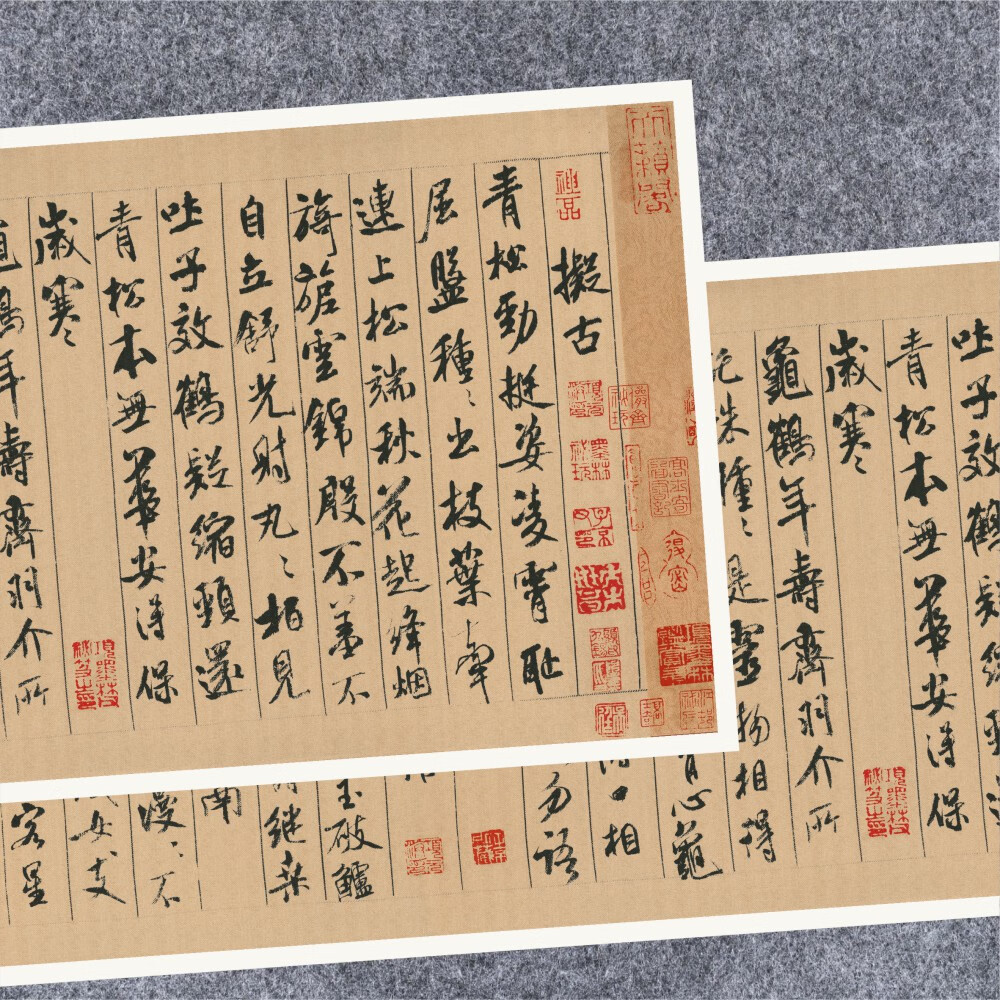 擬古
青松勁挺姿凌霄恥
屈盤種〻出枝葉牽
連上松端秋花起絳烟
旖旎雲錦殷不羞不
自立舒光射丸〻柏見
吐子效鶴疑縮頸還
青松本無華安得保
歲寒〻
龜鶴年壽齊羽介所
吐子效鶴疑縮頸還
青松本無華安得保
歲寒〻
龜鶴年壽齊羽介所
托殊種〻是靈物相得
心龜
口相
勿語
玉破鱸
繼桑
南
漫〻不
女支
客星